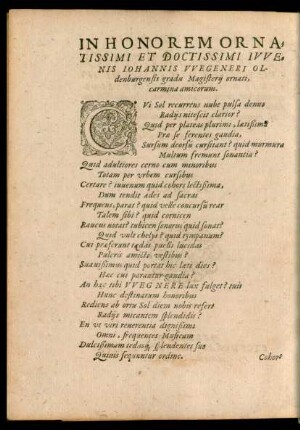 IN HONOREM ORNA-
TISSIMI ET DOCTISSIMI IVVE-
NIS IOHANNIS VVEGENERI OL-
denburgensis gradu Magisterij ornati,
carmina amicorum.
CVi Sol recurrens nube pulsa denuo
Radijs nitescit clarior?
Quid per plateas plurimi, latissima
Præ se ferentes gaudia,
Sursum deorsū cursitant? quid murmura
Multum fremunt sonantia?
Quid adultiores cerno cum minoribus
Totam per vrbem cursibus
Certare? iuuenum quid cohors lectissima,
Dum tendit ædes ad sacras
Frequens, parat? quid velle concursu rear
Talem sibi? quid cornicen
Raucus notat? tubicen sonarus quid sonat?
Quid vult chelys? quid tympanum?
Cur præferunt tædas puelli lucidas
Pulcris amicti vestibus?
Suauissimum quid portat hic læti dies?
Hæc cui parantur gaudia?
An hæc tibi VVEGNERE lux fulget? tuis
Hunc destinatum honoribus
Rediens ab ortu Sol diem nobis refert
Radijs micantem splendidis?
En vt viri reuerentia dignissimi
Omni, frequentes Musicam
Dulcissimam tædasq; splendentes suo
Quiuis sequuntur ordine.
Cohors